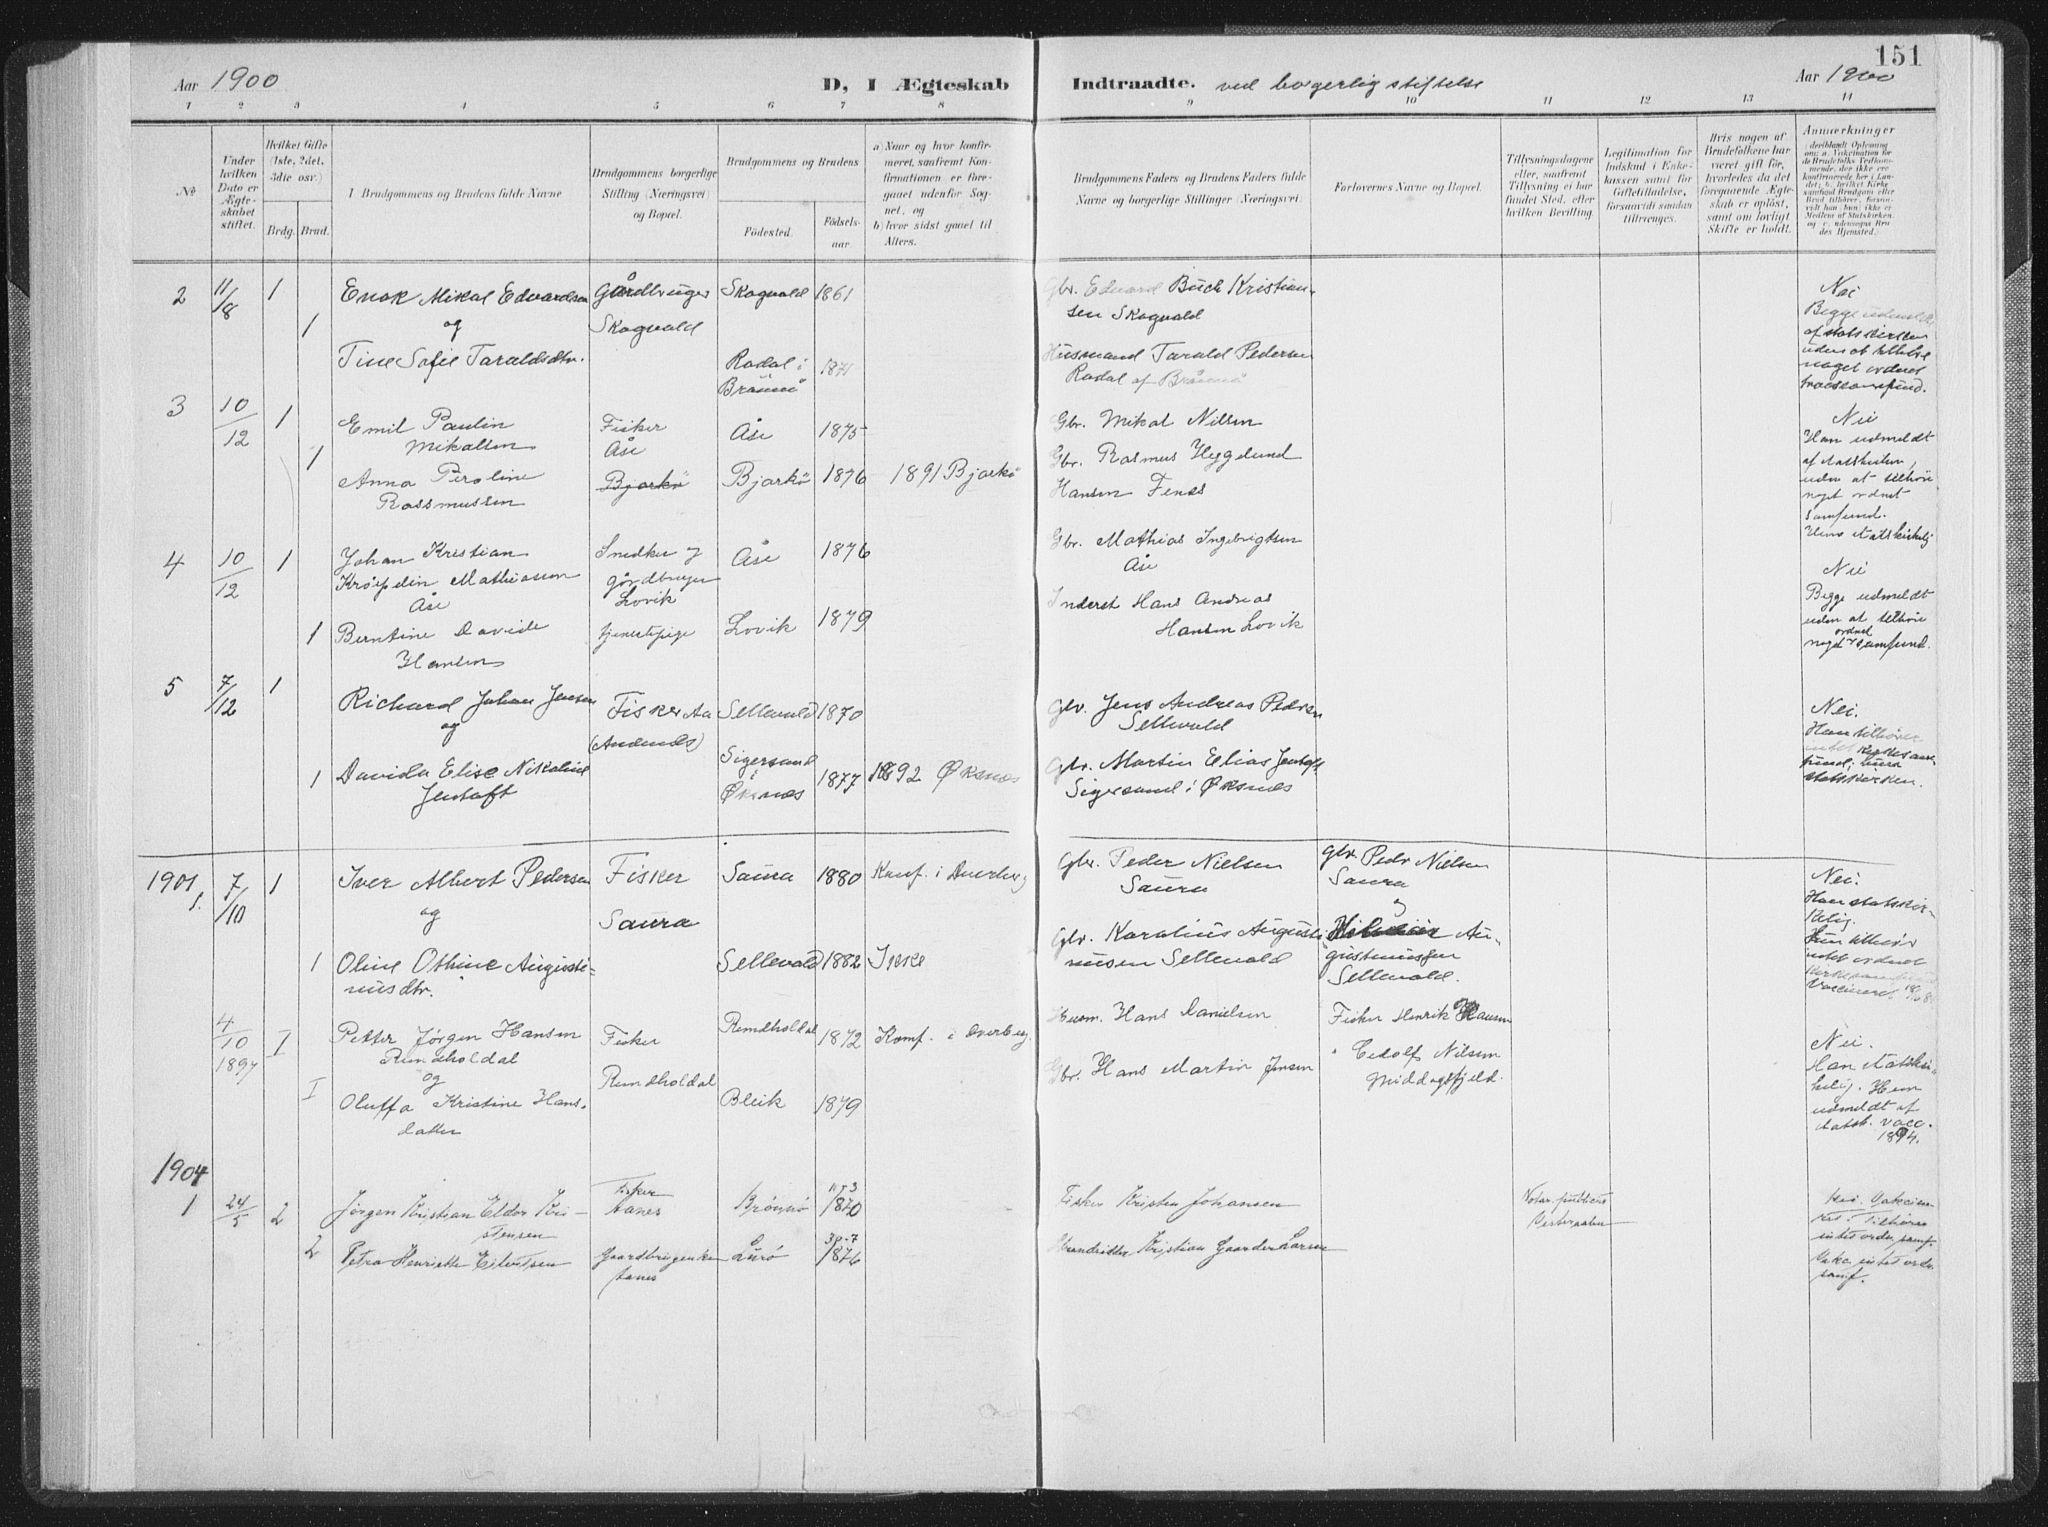 151
Aar 1900
D, I Ægteskab
Indtraadte. ved borgerlig stiftelse
Aar 1900
1 2 3 4 5 6 7 8 9 10 11 12 13 14
№
Under hvilken Dato er Ægteskabet stiftet.
Hvilket Gifte (1ste, 2det, 3die osv.)
Brdg. Brud.
1 Brudgommens og Brudens fulde Navne
Brudgommens borgerlige Stilling (Næringsvei) og Bopæl.
Brudgommens og Brudens
Fødested.
Fødselsaar.
a) Naar og hvor konfirmeret, saafremt Konfirmationen er foregaaet udenfor Sognet, og
b) hvor sidst gaaet til Alters.
Brudgommens Faders og Brudens Faders fulde Navne og borgerlige Stillinger (Næringsvei)
Forlovernes Navne og Bopæl.
Tillysningsdagene eller, saafremt Tillysning ei har fundet Sted, efter hvilken Bevilling.
Legitimation for Indskud i Enkekassen samt for Giftetilladelse, forsaavidt saadan tiltrænges.
Hvis nogen af Brudefolkene har været gift før, hvorledes da det foregaaende Ægteskab er opløst, samt om lovligt Skifte er holdt.
Anmærkninger
2 11/8 1
Enok Mikal Edvardsen
Gårdbruger
Skogvold 1861
1 og
Skogvold
Tine Sofie Taraldsdtr.
Rodal i
Brønnø
1871
Gbr. Edvard Buch Kristian-
sen Skogvold
Husmand Tarald Pedersen
Rodal af Brønnø
Nei
Begge udmeldt
af statskirken
uden at tilhøre
noget ordnet
trossamfund.
3 10/12 1
Emil Paulin
Mikalsen
Fisker
Åse
Åse 1875
1
Anna Peroline
Rassmussen
Bjarkø
Bjarkø 1876 1891 Bjarkø
Gbr. Mikal Nilsen
Gbr. Rasmus Hygelund
Hansen Fenes
Nei
Han udmeldt
af statskirken,
uden at tilhøre
noget ordnet
samfund.
Hun statskirkelig
4 10/12 1
Johan Kristian
Krøpelin Mathiassen
Åse
Snedker og
gårdbruger
Lovik
Åse 1876
1 Berntine Davide
Hansen
tjenestpige
Lovik 1879
Gbr. Mathias Ingebrigtsen
Åse
Inderst Hans Andreas
Hansen Lovik
Nei
Begge udmeldt
uden at tilhøre
noget ordnet samfund.
5 7/12 1
Richard Johan Jensen
og
Fisker Aa
(Andenes)
Sellevold 1870
1 Davida Elise Nikoline
Jentoft
Sigersund
i
Øksnes
1877 1892 Øksnes
Gbr. Jens Andreas Pedersen
Sellevold
Gbr. Martin Elias Jentoft
Sigersund i Øksnes
Nei.
Han tilhører
intet kirkesam-
fund; hun
statskirken.
1901
1. 7/10 1
Iver Albert Pedersen
og
Fisker
Saura
Saura 1880 Konf. i Dverberg
1 Oline Othine Augusti-
nusdtr.
Sellevold 1882 Ikke
Gbr. Peder Nielsen
Saura
Gbr. Karolius Augusti-
nusen Sellevold
Gbr. Pedr Nielsen
Saura
og
Au-
gustinussen
Sellevold.
Nei.
Han statskir-
kelig.
Hun tilhør
intet ordnet
kirkesamfund
Vaccineret
4/10
1897
I
Petter Jørgen Hansen
Rundholdal
og
Fisker
Rundholdal
Rundholdal 1872 Konf. i Dverberg.
I Oluffa Kristine Hans-
datter
Bleik 1879
Husm. Hans Danielsen
Gbr. Hans Martin Jensen
Fisker Henrik Hansen
" Cedolf Nilsen
Middagsfjeld.
Nei.
Han statskir-
kelig. Hun
udmeldt af
statsk. vacc.
1894.
1904
1 24/5 2
Jørgen Kristian Eldor Kri-
stensen
Fisker
Aanes
Brønnø
11/3
1870
2 Petra Henriette Eilertsen
Gaardbrugerske
Aanes
Lurø
30-7
1876
Fisker Kristen Johansen
Handelsm. Kristian Gaarder Larsen
Notar. publicus
Vesteraalen
Nei. Vakcine-
ret. Tilhører
intet orden. samf.
Vakc. intet ord.
samf.